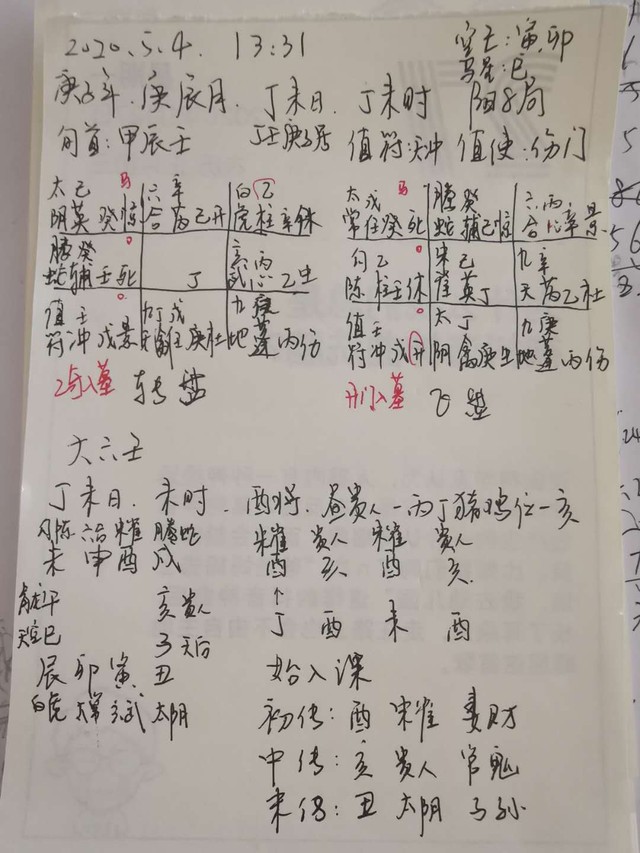 2020.5.4. 13:31 空亡:寅卯
马星:巳
庚子年.庚辰月.丁未日.丁未时 阳8局
旬首:甲辰壬 值符:天冲 值使:伤门
太己 马 六辛 白乙
阴英癸惊 合芮己开 虎柱辛休
螣癸 玄丙
蛇辅壬死 丁 武心乙生
值壬 九丁戊 九庚
符冲戊景 天禽任庚杜 地蓬丙伤
乙奇入墓 转盘
太戊 马 螣癸 六丙
常任癸死 蛇辅己惊 合心辛景
勾乙 朱己 九辛
陈柱壬休 雀英丁 天芮乙杜
值壬 太丁 九庚
符冲戊开 阴禽庚生 地蓬丙伤
开门入墓 飞盘
大六壬
丁未日.未时.酉将.昼贵人-丙丁猪鸡位-亥
勾陈 六合 朱雀 螣蛇 朱雀 贵人 朱雀 贵人
未 申 酉 戌 酉 亥 酉 亥
青龙午 亥贵人 ↑
天空巳 子天后 丁 酉 未 酉
辰 卯 寅 丑 始入课
白虎 太常 玄武 太阴
初传:酉 朱雀 妻财
中传:亥 贵人 官鬼
末传:丑 太阴 子孙